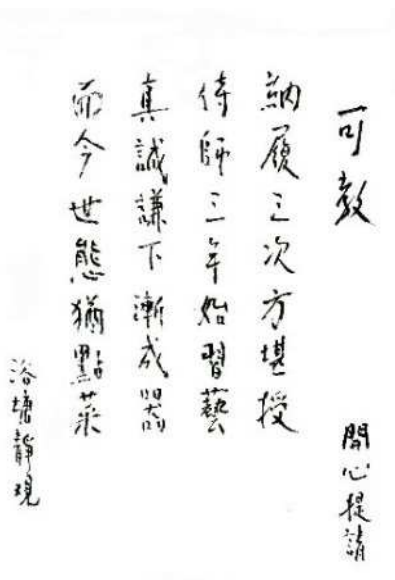 可教
開心提請
納履三次方堪授
侍師三年始習藝
真誠謙下漸成器
而今世態猶點菜
浴塘靜觀